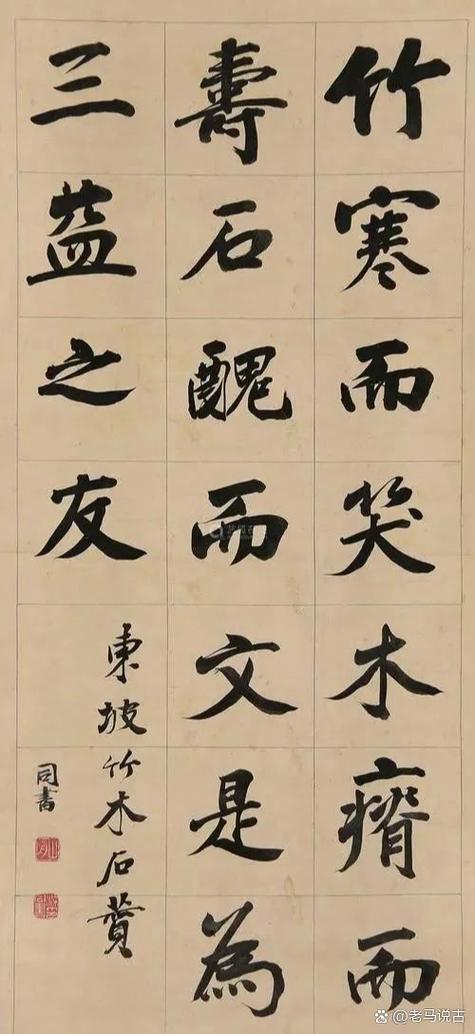 竹寒而笑木瘠而
壽石醜而文是為
三益之友
東坡竹木石贊
司書
@老马说古